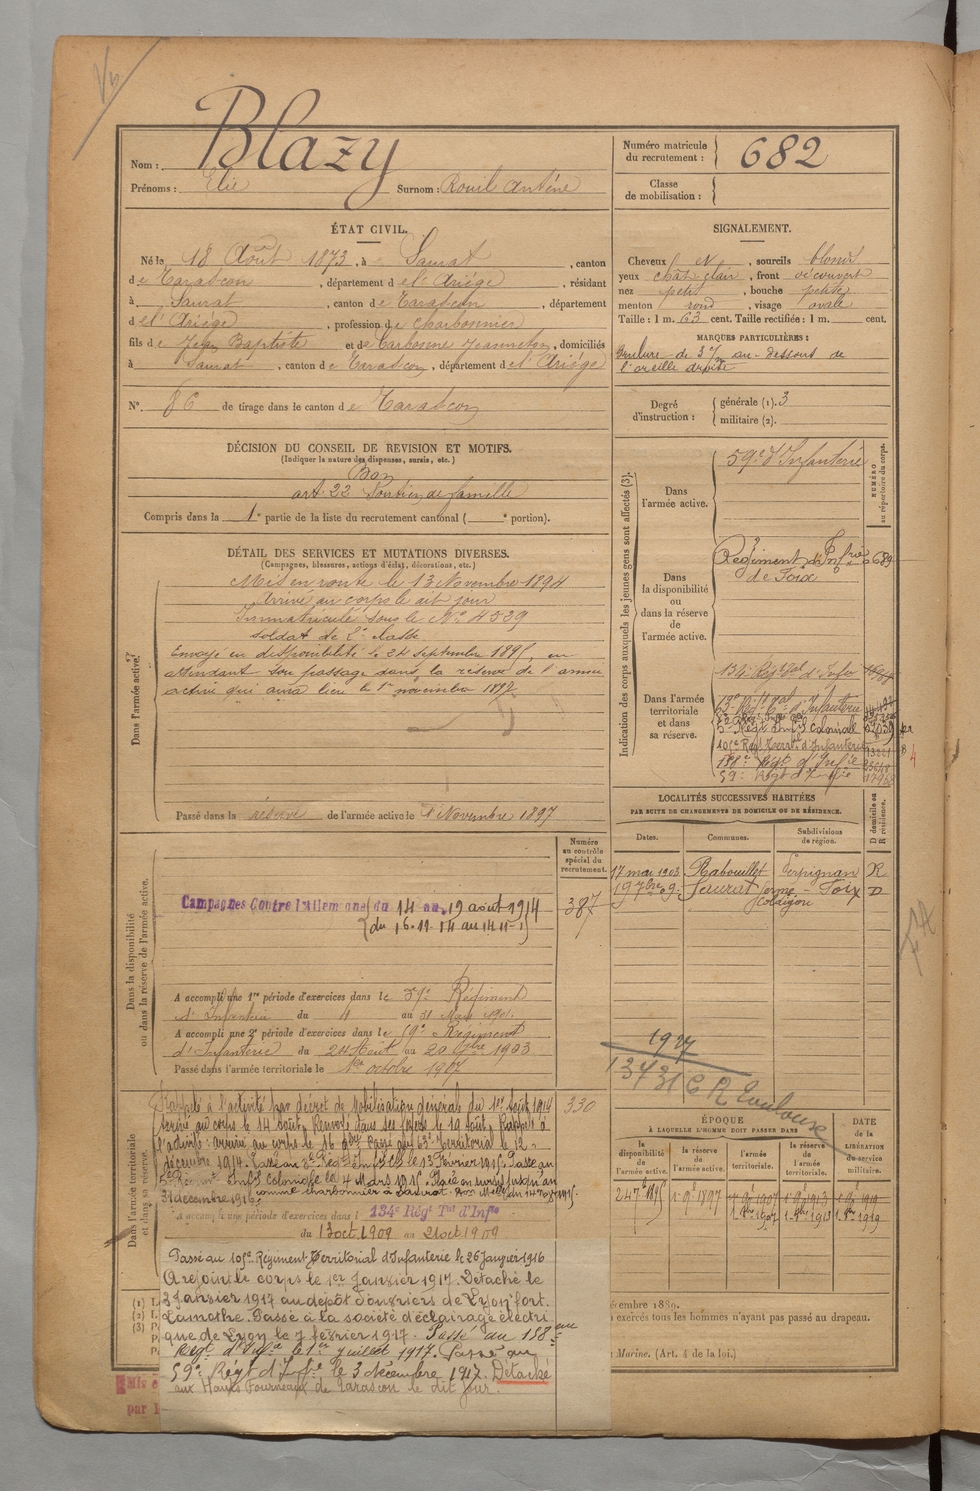 Blazy
Nom :
Prénoms : Elie Surnom : Rouil Anténe
Numéro matricule
du recrutement : 682
Classe
de mobilisation :
ÉTAT CIVIL.
Né le 18 Août 1873, à Saurat, canton
de Tarascon, département de l'Ariége, résidant
à Saurat, canton de Tarascon, département
de l'Ariége, profession de charbonnier
fils de Jean Baptiste et de Carbonne Jeanneton, domiciliés
à Saurat, canton de Tarascon, département de l'Ariége
N°. 86 de tirage dans le canton de Tarascon
SIGNALEMENT.
Cheveux N, sourcils blonds
yeux chat clair, front découvert
nez petit, bouche petite
menton rond, visage ovale
Taille : 1 m. 63 cent. Taille rectifiée : 1 m. cent.
MARQUES PARTICULIÈRES :
Brulure de au-dessous de
l'oreille droite
Degré
d'instruction :
générale (1). 3
militaire (2).
DÉCISION DU CONSEIL DE REVISION ET MOTIFS.
(Indiquer la nature des dispenses, sursis, etc.)
Bon
art. 22 Soutien de famille
Compris dans la 1e partie de la liste du recrutement cantonal ( e portion).
DÉTAIL DES SERVICES ET MUTATIONS DIVERSES.
(Campagnes, blessures, actions d'éclat, décorations, etc.)
Dans l'armée active.
Mis en route le 13 Novembre 1894
Arrivé au corps le dit jour
Immatriculé sous le N° 4529
soldat de 2e classe
Envoyé en disponibilité le 24 septembre 1895, en
attendant son passage dans la réserve de l'armée
active qui aura lieu le 1er novembre 1897
Passé dans la réserve de l'armée active le 1 Novembre 1897
Indication des corps auxquels les jeunes gens sont affectés (3).
Dans
l'armée active.
59e d'Infanterie
NUMÉRO
au répertoire du corps.
Dans
la disponibilité
ou
dans la réserve
de
l'armée active.
Régiment d'Infrie 689
de Foix
Dans l'armée
territoriale
et dans
sa réserve.
134e Régt tal d'Infie
63e Régt tal d'Infanterie
5e Régt Infie Coloniale
105e Régt Territ d'Infanterie
158e Régt d'Infie
59e Régt d'Infie
LOCALITÉS SUCCESSIVES HABITÉES
PAR SUITE DE CHANGEMENTS DE DOMICILE OU DE RÉSIDENCE.
Dates. Communes. Subdivisions
de région.
D domicile ou
R résidence.
17 mai 1903 Rabouillet Perpignan R
Saurat Foix D
Numéro
au contrôle
spécial du
recrutement.
387
Dans la disponibilité
ou dans la réserve de l'armée active.
Campagnes Contre l'Allemagne (du 14 au 19 août 1914
A accompli une 1re période d'exercices dans le 59e Régiment
d'Infanterie du 4 au 31 Mars 1901.
A accompli une 2e période d'exercices dans le 59e Régiment
d'Infanterie du 24 Août au 20 7bre 1903
Passé dans l'armée territoriale le 1er octobre 1907
1927
13731 C R Toulouse
Dans l'armée territoriale
et dans sa réserve.
Rappelé à l'activité par décret de Mobilisation générale du 1er Août 1914 330
arrivé au corps le 14 août. Renvoyé dans ses foyers le 19 Août. Rappelé à
l'activité : arrivé au corps le 16 9bre. Passé au 63e Territorial le 12
décembre 1914. Passé au Régt le 13 Février 1915. Passé au
5e Régiment Infie coloniale le 4 Mars 1915. Placé en sursis jusqu'au
31 décembre 1915 comme charbonnier à Saurat.
A accompli une période d'exercices dans l 134e Régt Tal d'Infie
du 13 oct. 1909 au 21 oct 1909
Passé au 105e Régiment Territorial d'Infanterie le 26 Janvier 1916
A rejoint le corps le 1er Janvier 1917. Détaché le
3 Janvier 1917 au dépôt d'ouvriers de Lyon fort
Lamothe. Passé à la société d'éclairage électri
que de Lyon le 7 février 1917. Passé au 158ème
Régt d'Infie le 1er juillet 1917. Passé au
59e Régt d'Infie le 3 décembre 1917. Détaché
aux Hauts Fourneaux de Tarascon le dit jour.
ÉPOQUE
À LAQUELLE L'HOMME DOIT PASSER DANS
la
disponibilité
de l'armée
active.
la réserve
de
l'armée active.
l'armée
territoriale.
la réserve
de l'armée
territoriale.
DATE
de la
LIBÉRATION
du service
militaire.
1er 9bre 1897
1er 8bre 1907 1er 8bre 1913 1er 8bre 1919
écembre 1889.
s exercés tous les hommes n'ayant pas passé au drapeau.
Marine. (Art. 4 de la loi.)
(1)
(2)
(3)